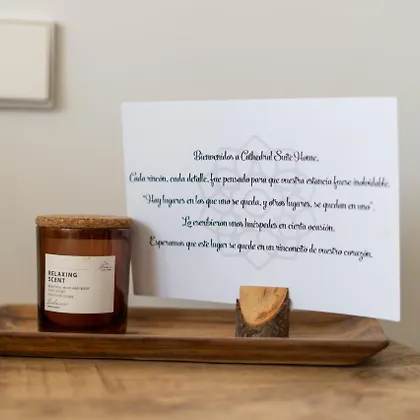 Bienvenidos a Cathedral Suite Home.
Cada rincón, cada detalle, fue pensado para que vuestra estancia fuese inolvidable.
"Hay lugares en los que uno se queda, y otros lugares, se quedan en uno".
Lo escribieron unos huéspedes en cierta ocasión.
Esperamos que este lugar se quede en un rinconcito de vuestro corazón.
RELAXING
SCENT